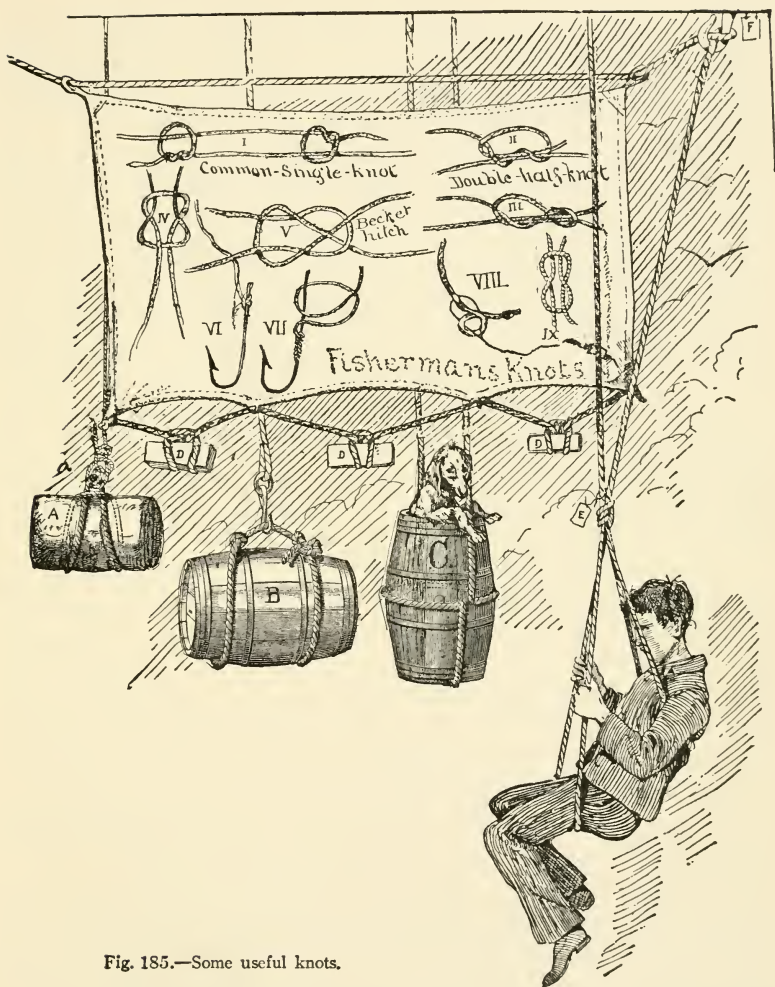 F
I
II
Common-Single-knot
Double-half-knot
IV
V
Becket
hitch
III
VI
VII
VIII
IX
Fishermans Knots
D
D
D
a
A
B
C
E
Fig. 185.—Some useful knots.